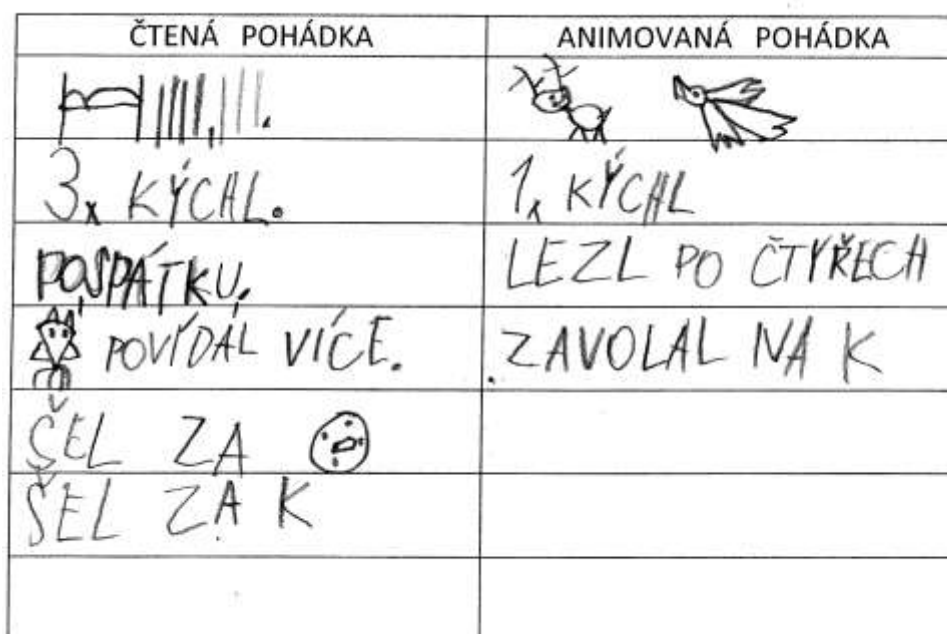 ČTENÁ POHÁDKA ANIMOVANÁ POHÁDKA
3x KÝCHL. 1x KÝCHL
POSPÁTKU. LEZL PO ČTYŘECH
POVÍDAL VÍCE. ZAVOLAL NA K
ŠEL ZA
ŠEL ZA K